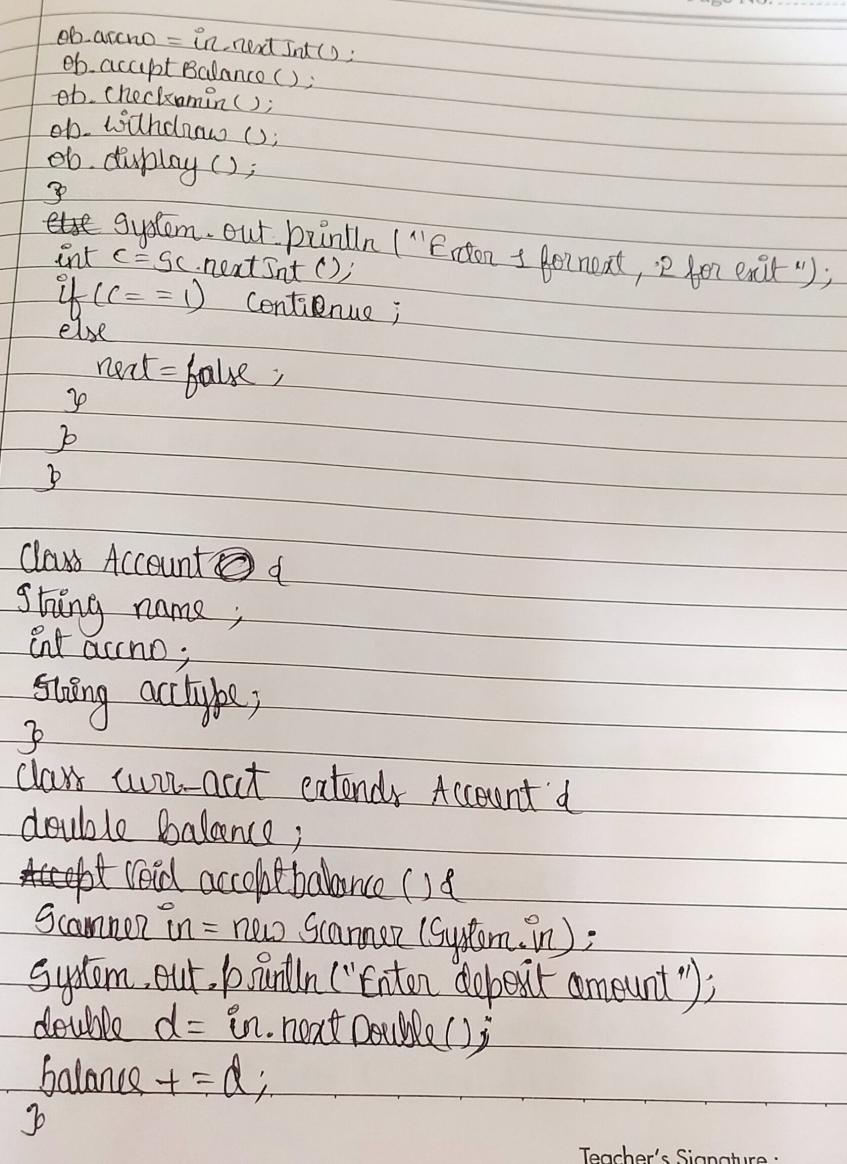 ob.accno = in.nextInt();
ob.acceptBalance();
ob.checkmin();
ob.withdraw();
ob.display();
}
else System.out.println("Enter 1 for next, 2 for exit");
int c=sc.nextInt();
if(c==1) continue;
else
next=false;
}
}
}
Class Account {
String name;
int accno;
String acctype;
}
Class curr-acct extends Account {
double balance;
Accept void acceptbalance(){
Scanner in = new Scanner(System.in);
System.out.println("Enter deposit amount");
double d= in.nextDouble();
balance += d;
}
Teacher's Signature :